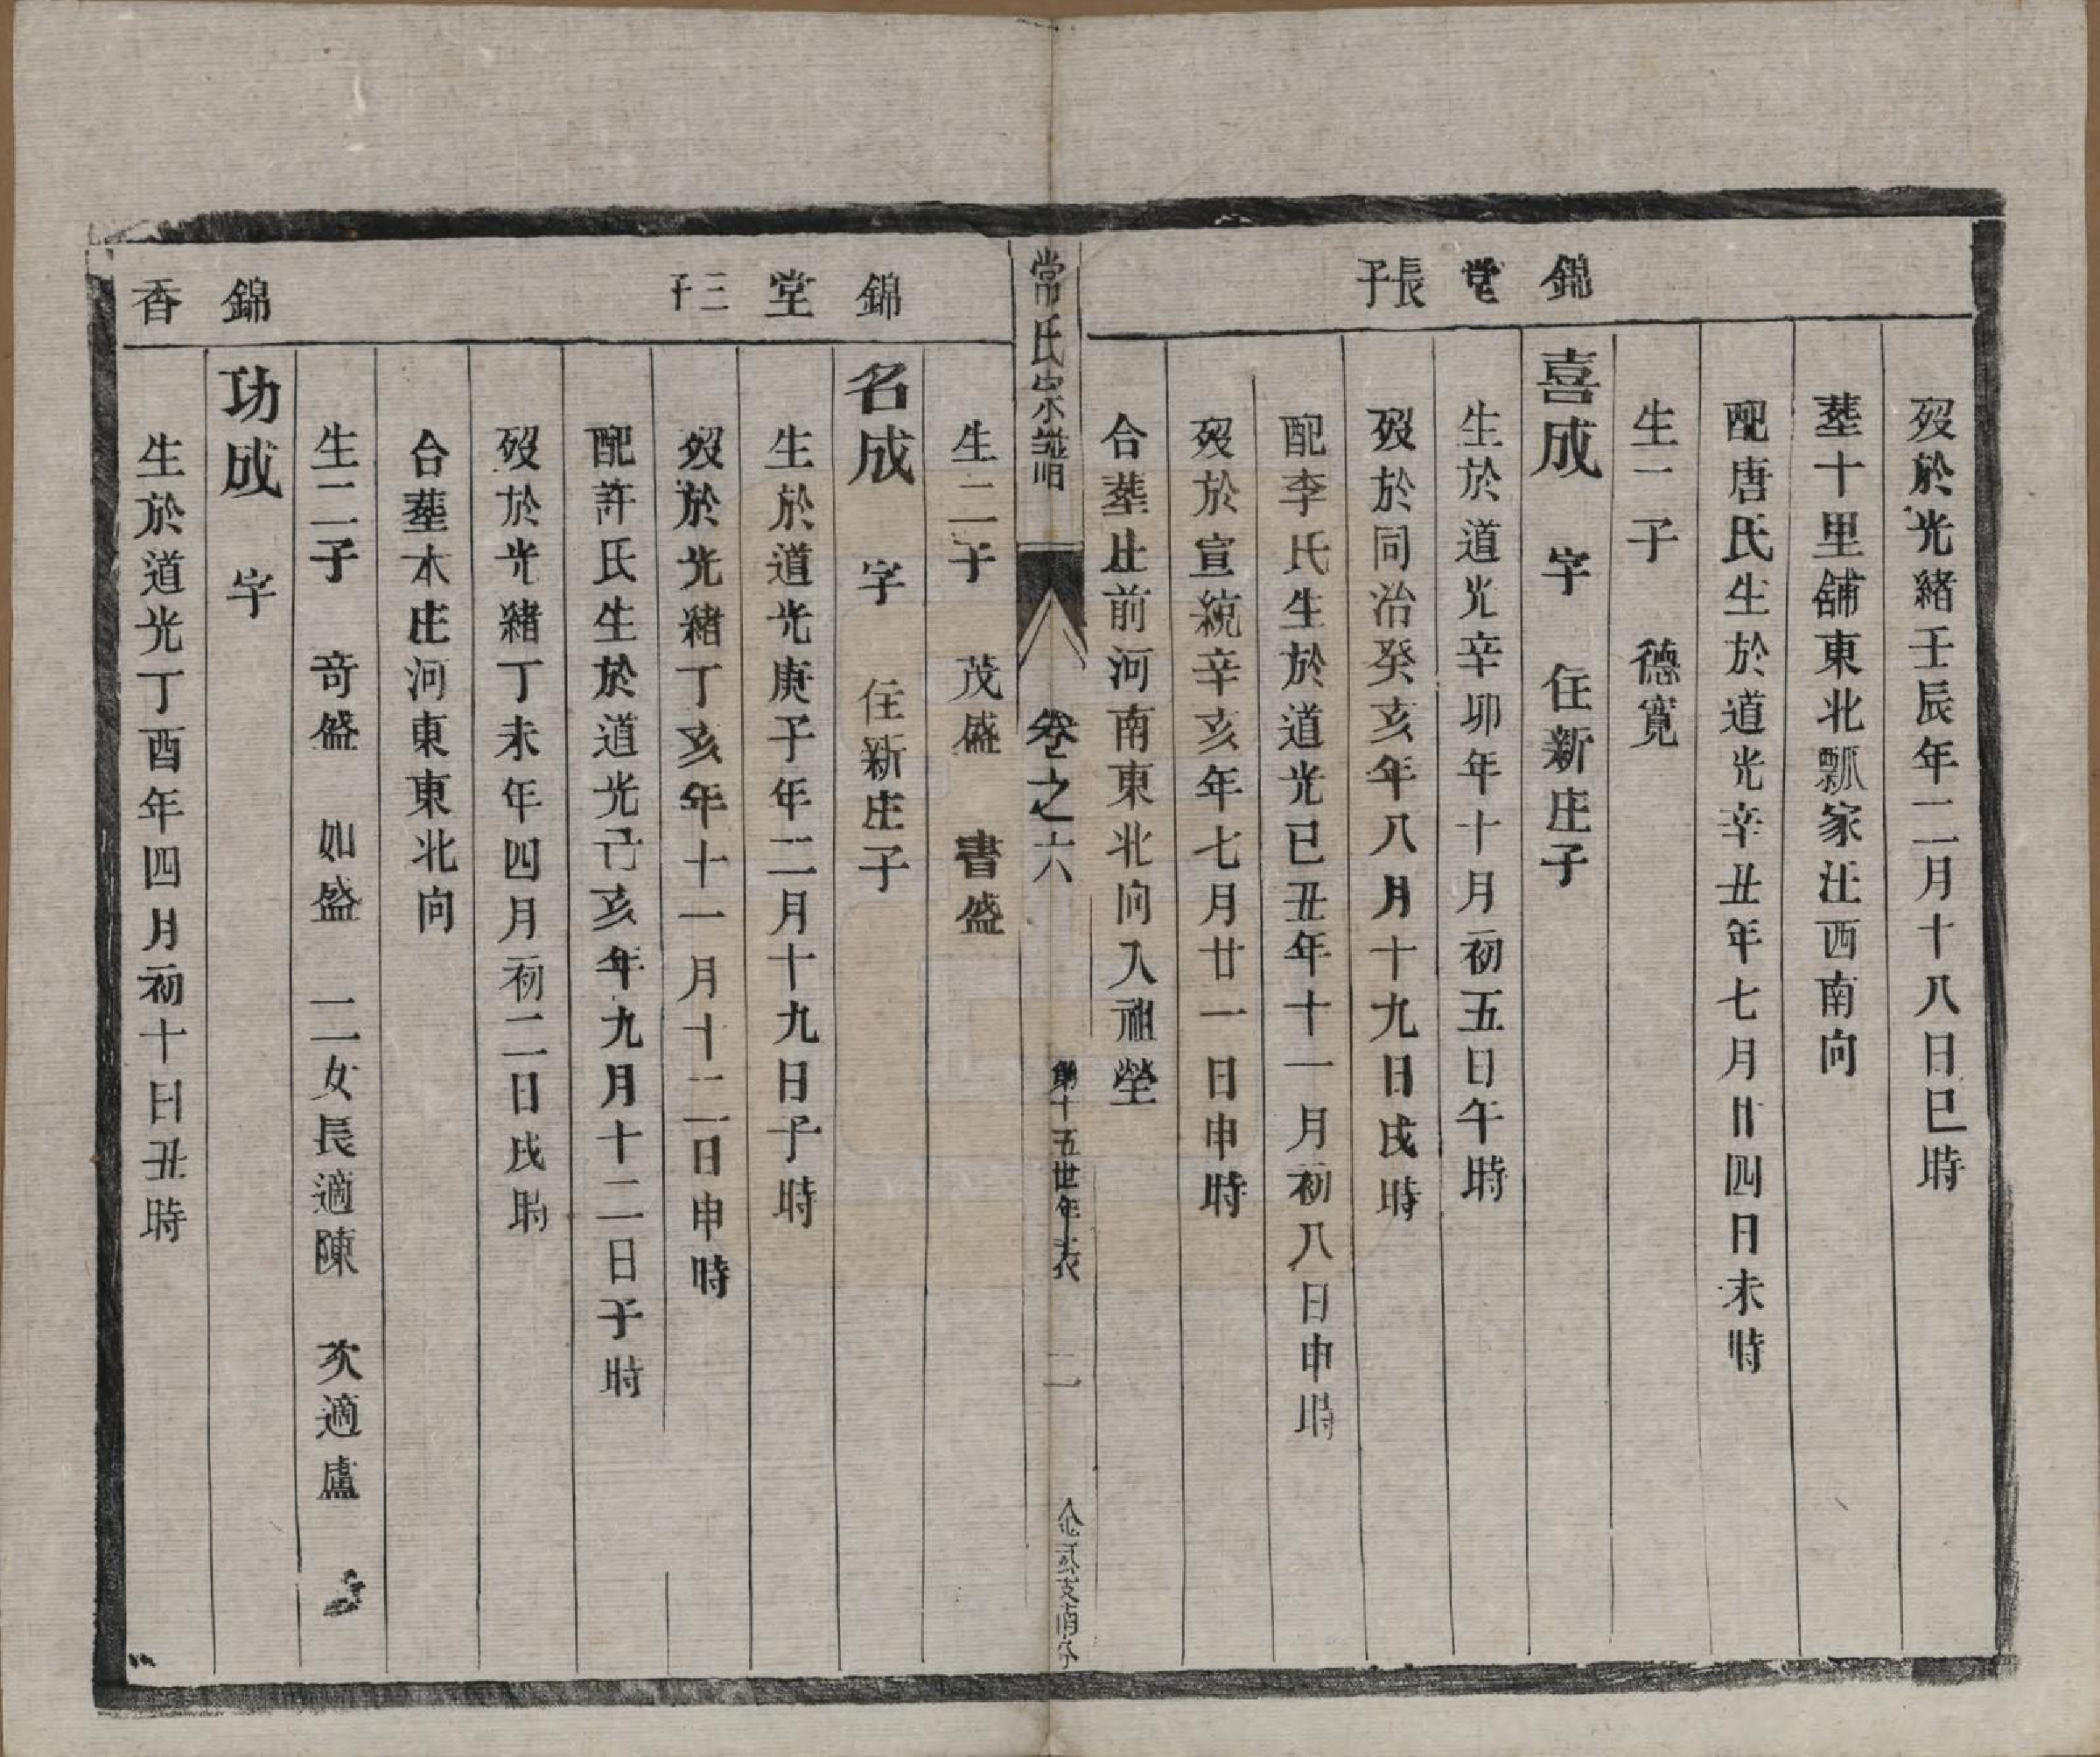 歿於光緒壬辰年二月十八日巳時
葬十里舖東北瓢家汪西南向
配唐氏生於道光辛丑年七月廿四日未時
生一子　德寛
錦堂長子
喜成　字　住新庄子
生於道光辛卯年十月初五日午時
歿於同治癸亥年八月十九日戌時
配李氏生於道光已丑年十一月初八日申時
歿於宣統辛亥年七月廿一日申時
合葬庄前河南東北向入祖塋
常氏宗譜　卷之六　第十五世年表　二
生二子　茂盛　書盛
錦堂三子
名成　字　住新庄子
生於道光庚子年二月十九日子時
歿於光緒丁亥年十一月十二日申時
配許氏生於道光己亥年九月十二日子時
歿於光緒丁未年四月初二日戌時
合葬本庄河東東北向
生二子　奇盛　如盛　二女長適陳　次適盧
錦香
功成　字
生於道光丁酉年四月初十日丑時